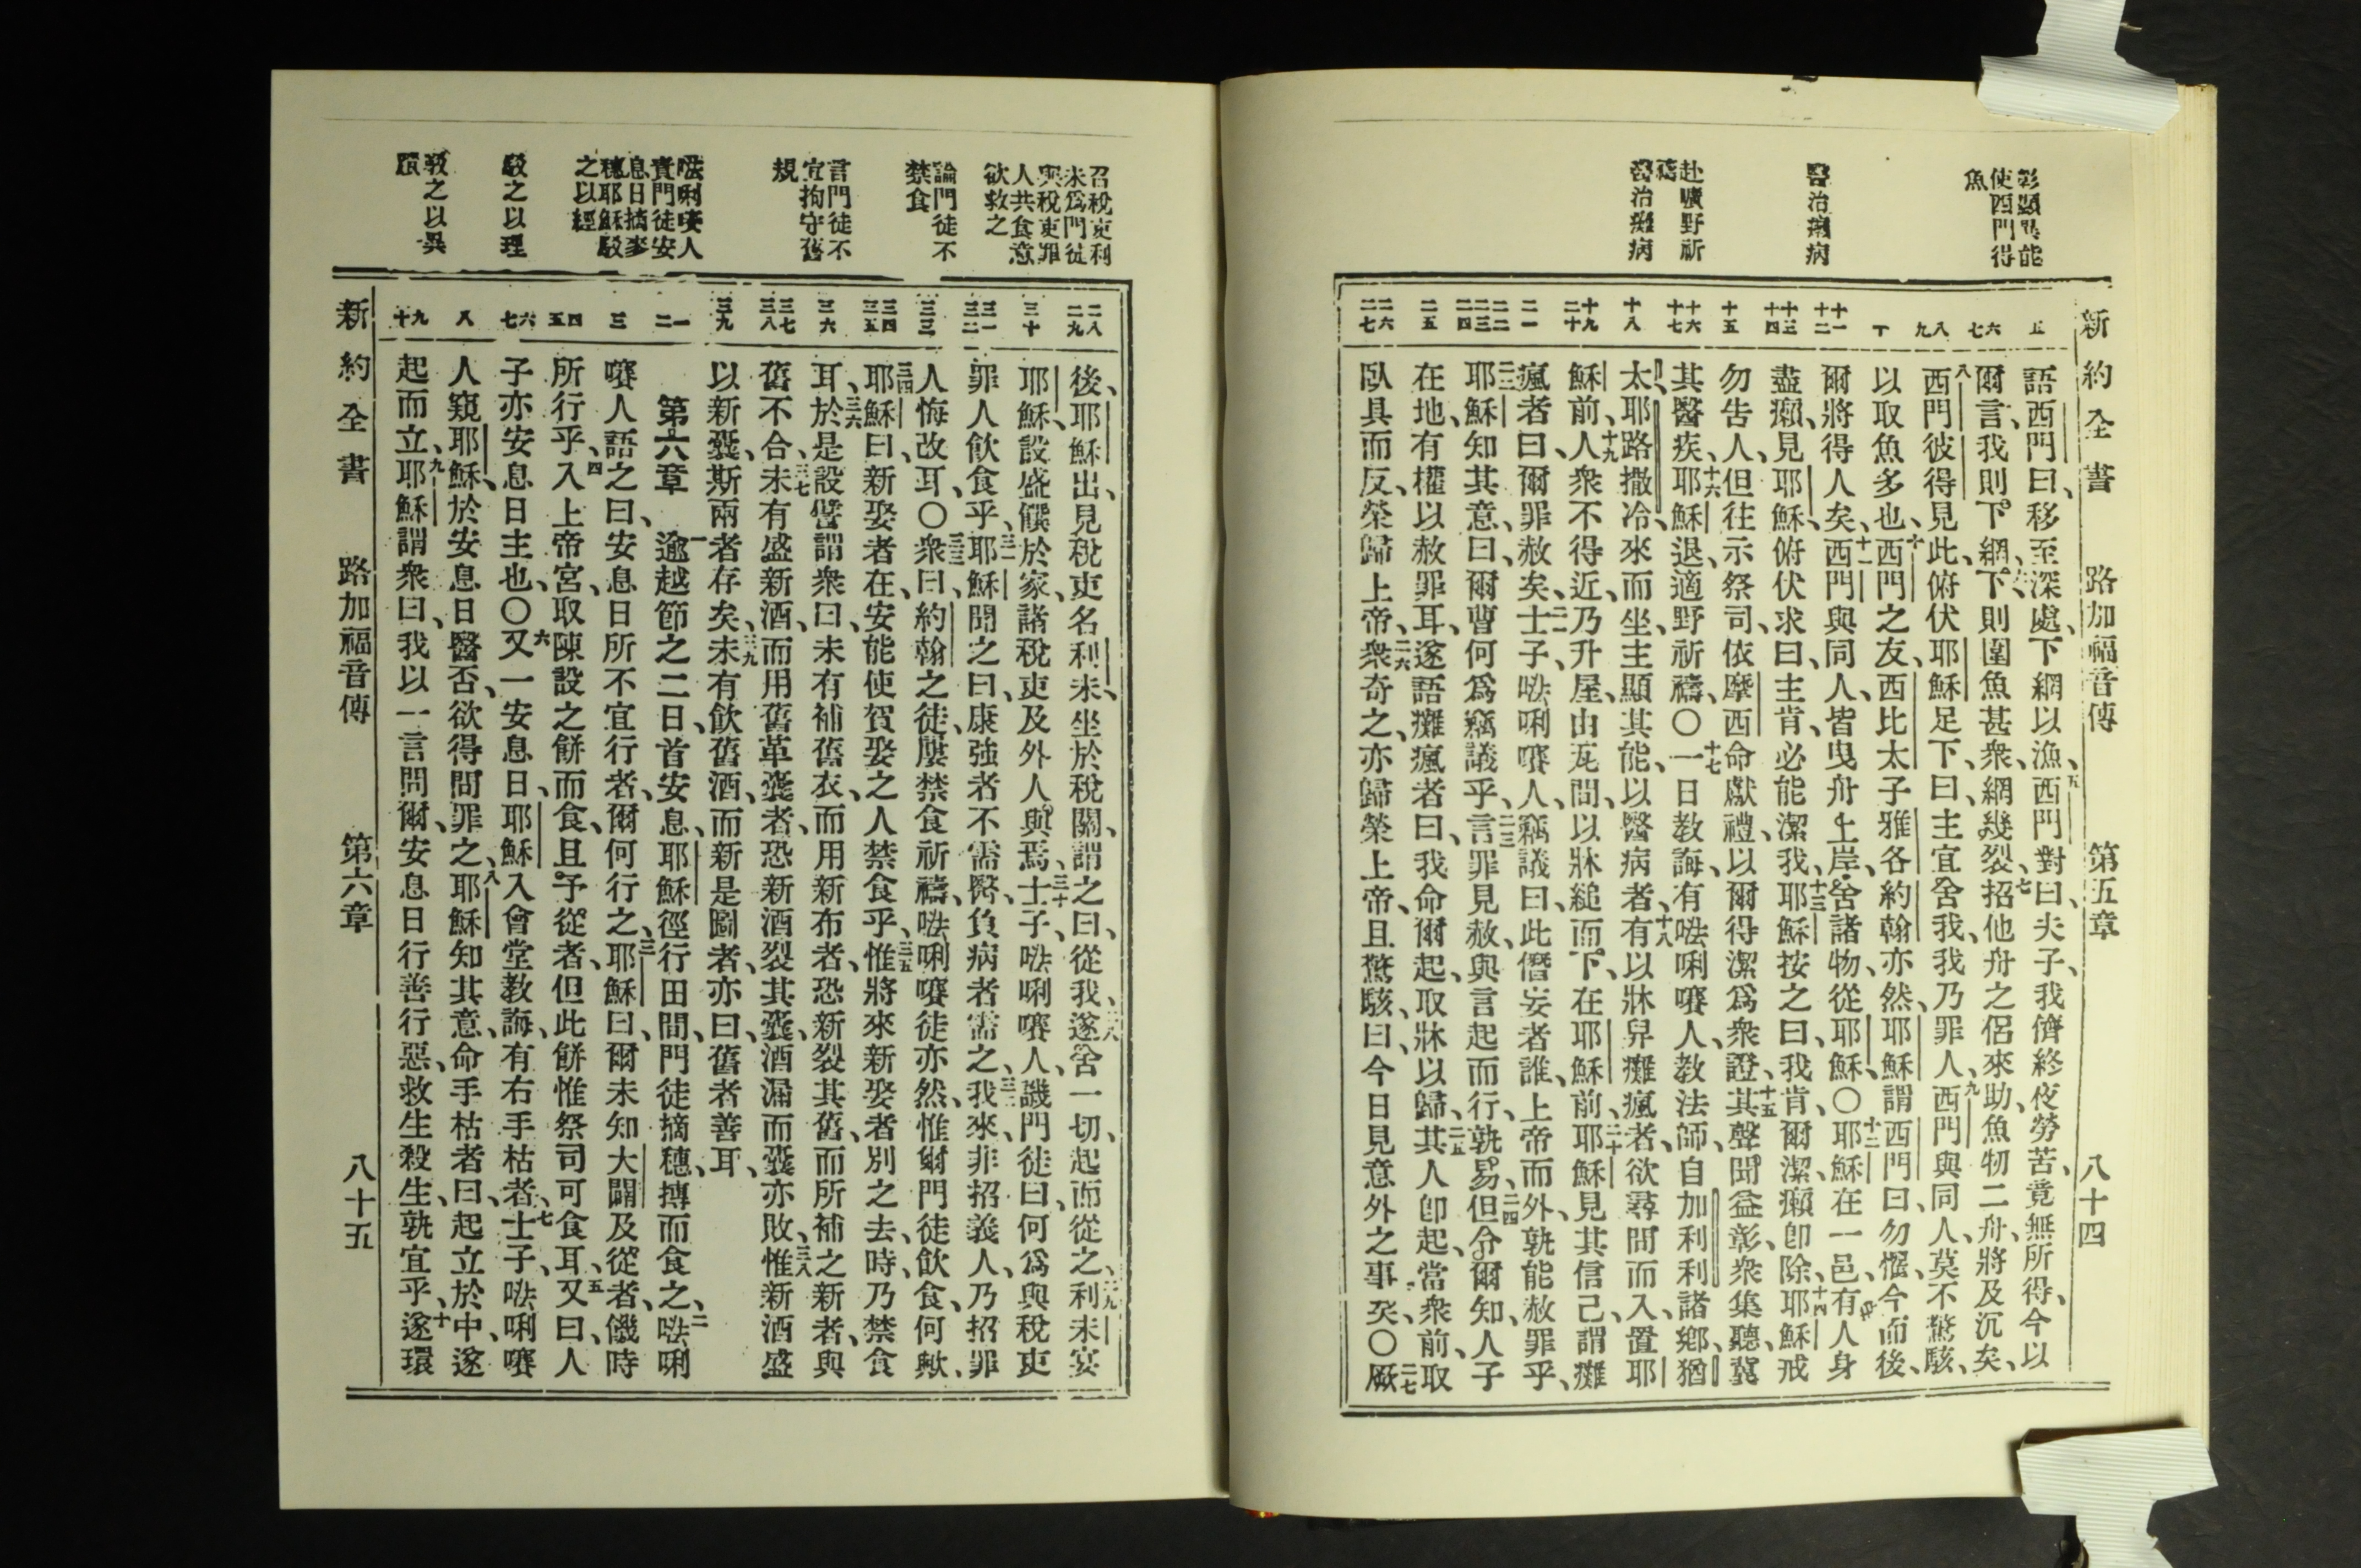 新約全書 路加福音傳 第五章 八十四
彰顯異能
使西門得
魚
醫治癩病
赴曠野祈
禱
醫治癱病
五
六 七
八 九
十
十一 十二
十三 十四
十五
十六 十七
十八
十九 二十
二一
二二 二三 二四
二五
二六 二七
語西門曰、移至深處、下網以漁、五西門對曰、夫子、我儕終夜勞苦、竟無所得、今以
爾言、我則下網、六下則圍魚甚衆、網幾裂、七招他舟之侶來助、魚牣二舟、將及沉矣、
八西門彼得見此、俯伏耶穌足下、曰、主宜舍我、我乃罪人、九西門與同人、莫不驚駭、
以取魚多也、十西門之友、西比太子雅各約翰亦然、耶穌謂西門曰、勿懼、今而後、
爾將得人矣、十一西門與同人、皆曳舟上岸、舍諸物、從耶穌、〇十二耶穌在一邑、有人身
盡癩、見耶穌、俯伏求曰、主肯、必能潔我、十三耶穌按之曰、我肯、爾潔、癩卽除、十四耶穌戒
勿告人、但往示祭司、依摩西命獻禮、以爾得潔爲衆證、十五其聲聞益彰、衆集聽、冀
其醫疾、十六耶穌退、適野祈禱、〇十七一日敎誨、有㕸唎㘔人、敎法師、自加利利諸鄉、猶
太、耶路撒冷、來而坐、主顯其能、以醫病者、十八有以牀舁癱瘋者、欲尋間而入、置耶
穌前、十九人衆不得近、乃升屋、由瓦間、以牀縋而下、在耶穌前、二十耶穌見其信己、謂癱
瘋者曰、爾罪赦矣、二一士子、㕸唎㘔人、竊議曰、此僭妄者誰、上帝而外、孰能赦罪乎、
二二耶穌知其意、曰、爾曹何爲竊議乎、二三言罪見赦、與言起而行、孰易、二四但令爾知、人子
在地、有權以赦罪耳、遂語癱瘋者曰、我命爾起、取牀以歸、二五其人卽起、當衆前、取
臥具而反、榮歸上帝、二六衆奇之、亦歸榮上帝、且驚駭曰、今日見意外之事矣、〇二七厥
召稅吏利
未爲門徒
與稅吏罪
人共食意
欲敎之
論門徒不
禁食
言門徒不
宜拘守舊
規
㕸唎㘔人
責門徒安
息日摘麥
穗耶穌駁
之以經
駁之以理
敎之以異
蹟
二八 二九
三十
三一 三二
三三
三四 三五
三六
三七 三八
三九
一 二
三
四 五
六 七
八
九 十
後、耶穌出、見稅吏名利未、坐於稅關、謂之曰、從我、二八遂舍一切、起而從之、二九利未宴
耶穌、設盛饌於家、諸稅吏及外人與焉、三十士子、㕸唎㘔人、譏門徒曰、何爲與稅吏
罪人飮食乎、三一耶穌聞之曰、康強者不需醫、負病者需之、三二我來、非招義人、乃招罪
人悔改耳、〇三三衆曰、約翰之徒、屢禁食祈禱、㕸唎㘔徒亦然、惟爾門徒飮食、何歟、
三四耶穌曰、新娶者在、安能使賀娶之人禁食乎、三五惟將來新娶者別之去、時乃禁食
耳、三六於是設譬謂衆曰、未有補舊衣、而用新布者、恐新裂其舊、而所補之新者、與
舊不合、三七未有盛新酒、而用舊革囊者、恐新酒裂其囊、酒漏而囊亦敗、三八惟新酒盛
以新囊、斯兩者存矣、三九未有飮舊酒、而新是圖者、亦曰、舊者善耳、
第六章 一逾越節之二日、首安息、耶穌徑行田間、門徒摘穗、摶而食之、二㕸唎
㘔人語之曰、安息日所不宜行者、爾何行之、三耶穌曰、爾未知大闢及從者、饑時
所行乎、四入上帝宮、取陳設之餠而食、且予從者、但此餠惟祭司可食耳、五又曰、人
子亦安息日主也、〇六又一安息日、耶穌入會堂敎誨、有右手枯者、七士子、㕸唎㘔
人窺耶穌、於安息日醫否、欲得間罪之、八耶穌知其意、命手枯者曰、起立於中、遂
起而立、九耶穌謂衆曰、我以一言問爾、安息日行善行惡、救生殺生、孰宜乎、十遂環
新約全書 路加福音傳 第六章 八十五